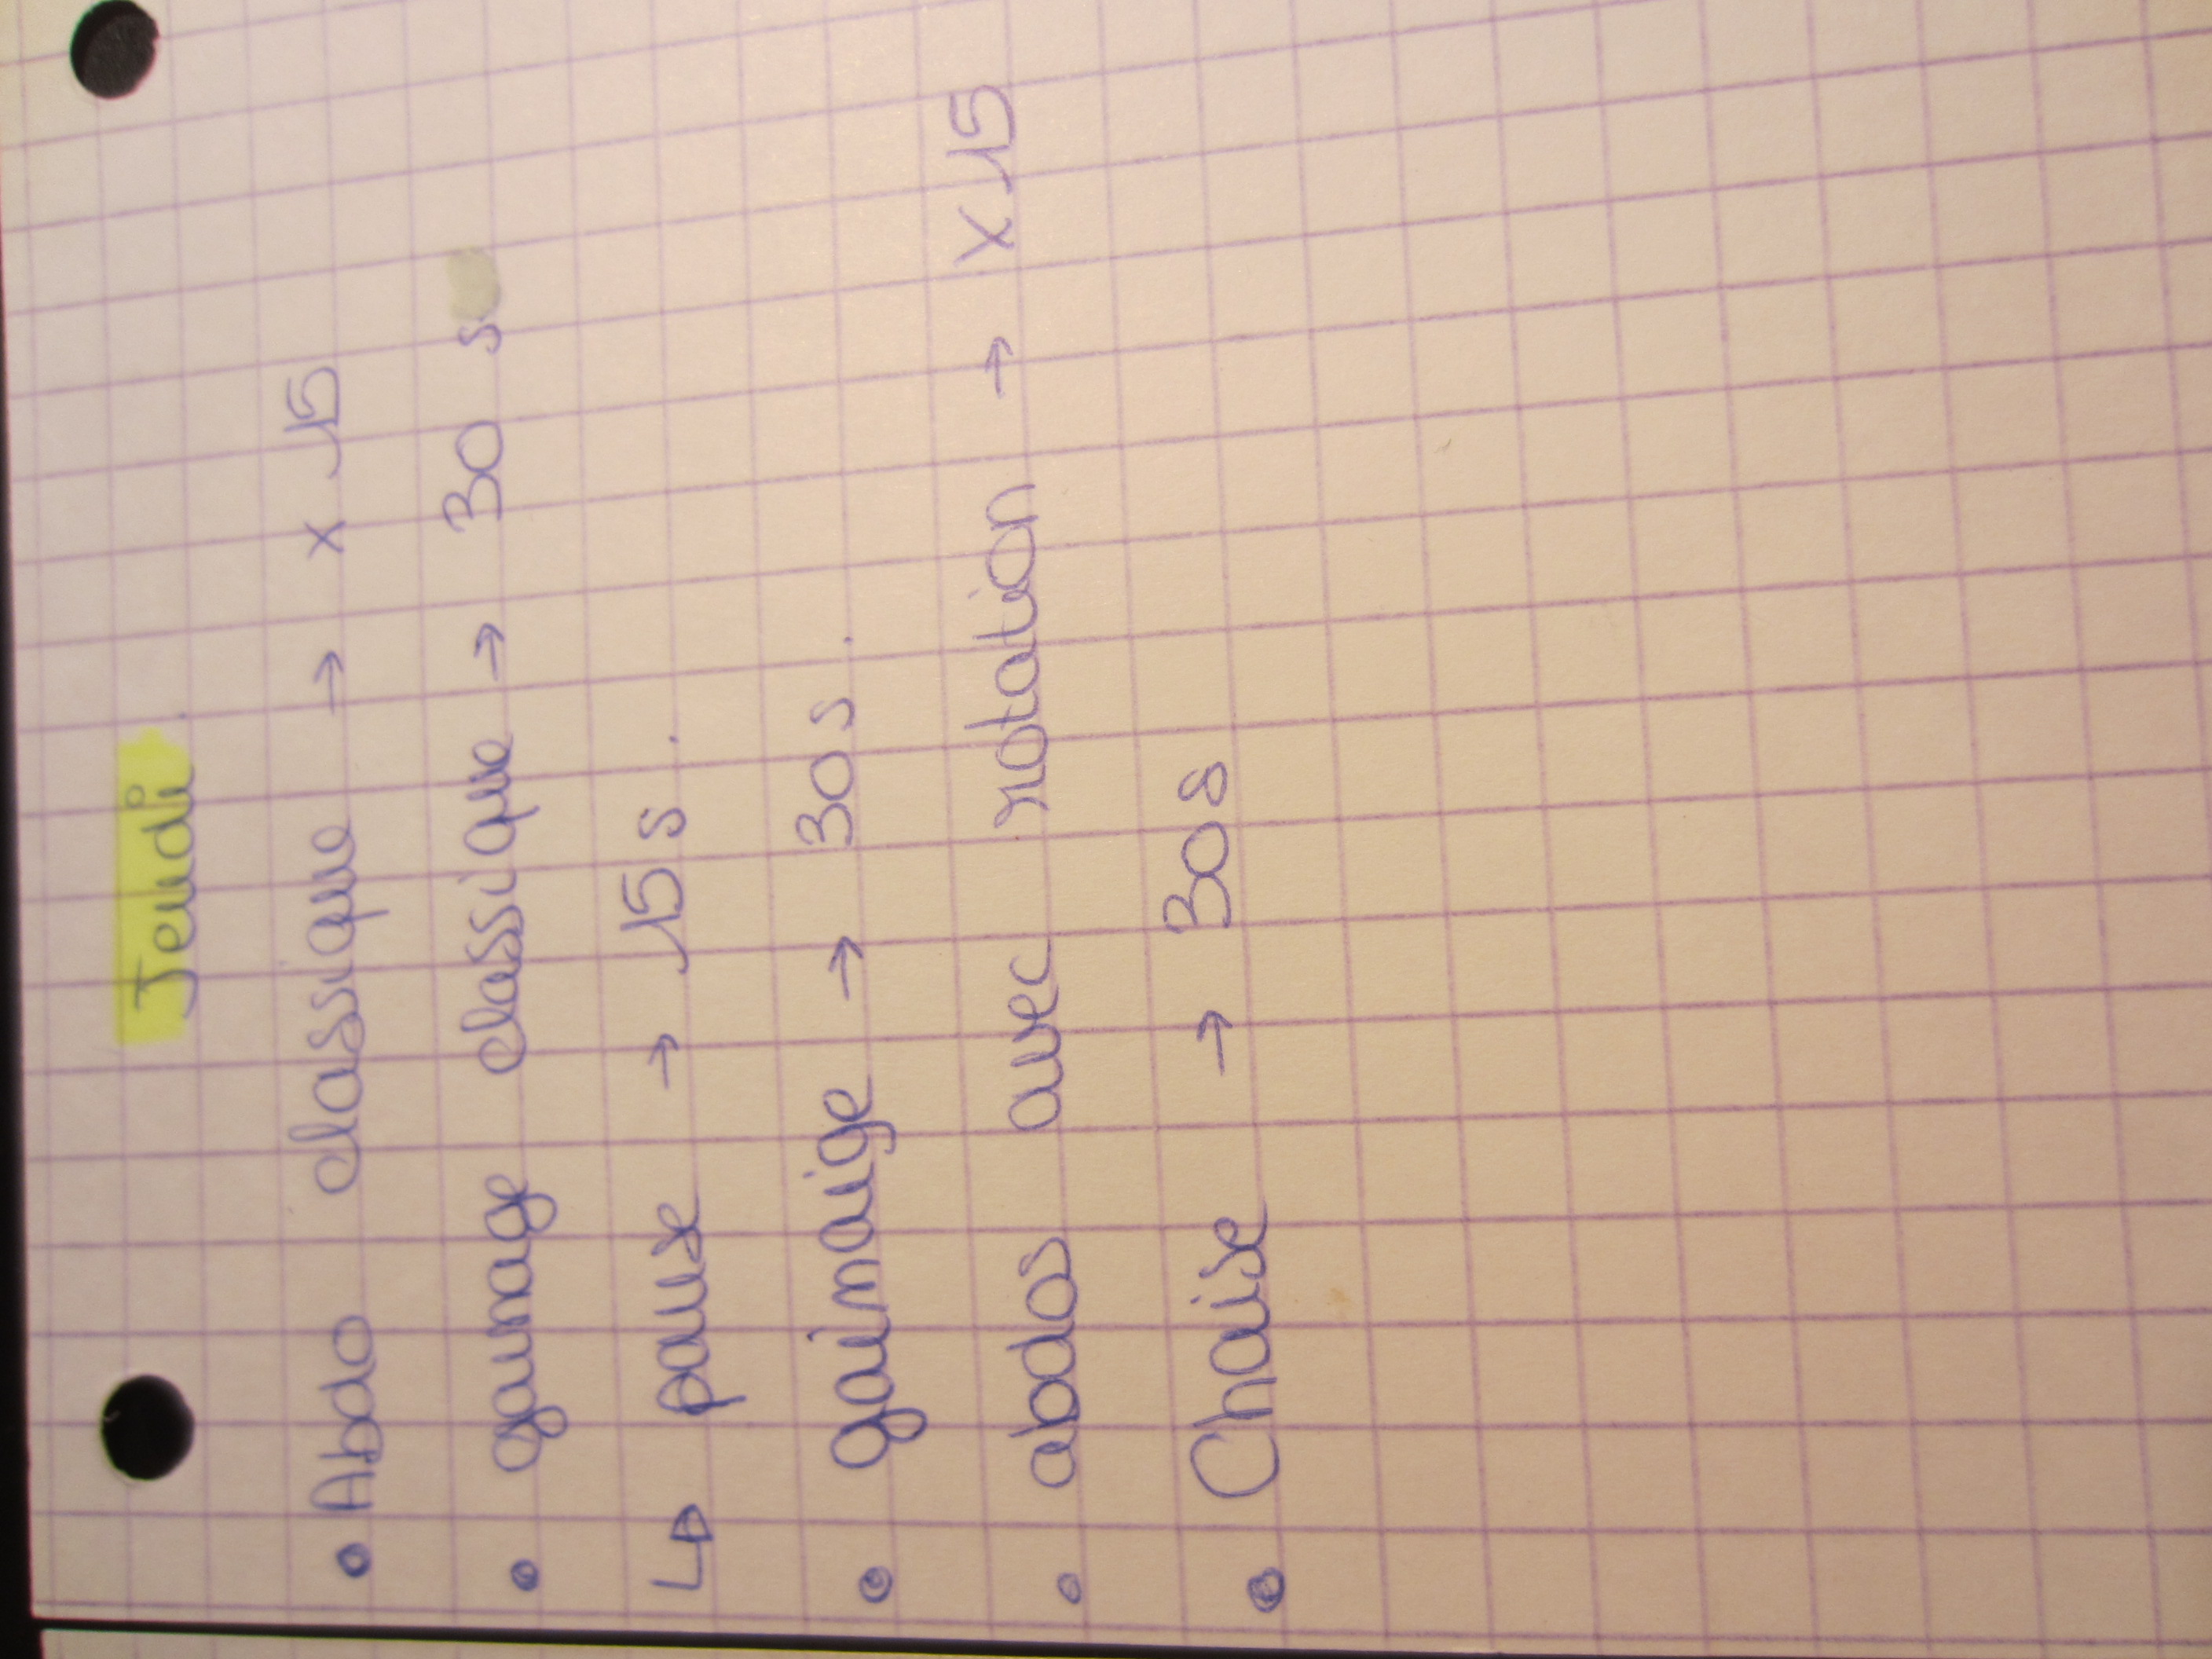 Jeudi.
• Abdo classique → x 15
• gainage classique → 30 s
↳ pause → 15 s.
• gainaige → 30 s.
• abdos avec rotation → x 15
• Chaise → 30 s